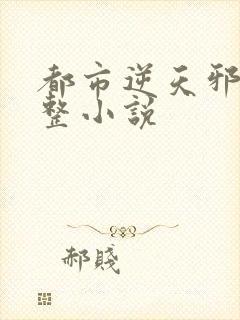 都市逆天邪
整小説
郝賤